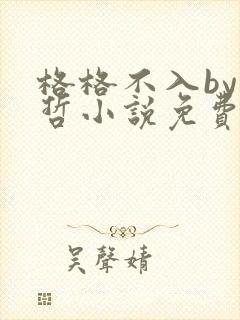 格格不入by
哲小說免費
吴聲婧